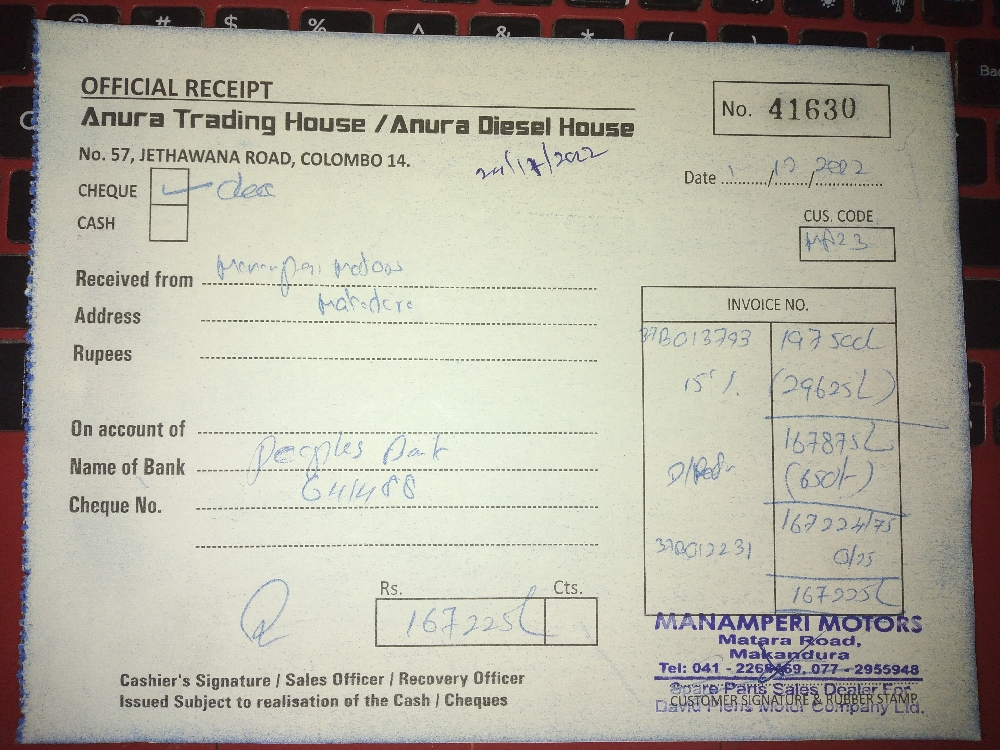 OFFICIAL RECEIPT
Anura Trading House / Anura Diesel House
No. 41630
No. 57, JETHAWANA ROAD, COLOMBO 14.
Date 1/12/2022
CHEQUE
CASH
CUS. CODE
MA23
Received from Manamperi Motors
Address
Rupees
On account of
Name of Bank Peoples Bank
Cheque No. 641488
INVOICE NO.
37B013793 197500/-
15% (29625/-)
167875/-
(650/-)
167224/75
37B012231 0/25
167225/-
Rs. Cts.
167225/-
MANAMPERI MOTORS
Matara Road,
Makandura
Tel: 041 - 2268469, 077 - 2955948
Spare Parts Sales Dealer For
David Pieris Motor Company Ltd.
CUSTOMER SIGNATURE & RUBBER STAMP
Cashier's Signature / Sales Officer / Recovery Officer
Issued Subject to realisation of the Cash / Cheques